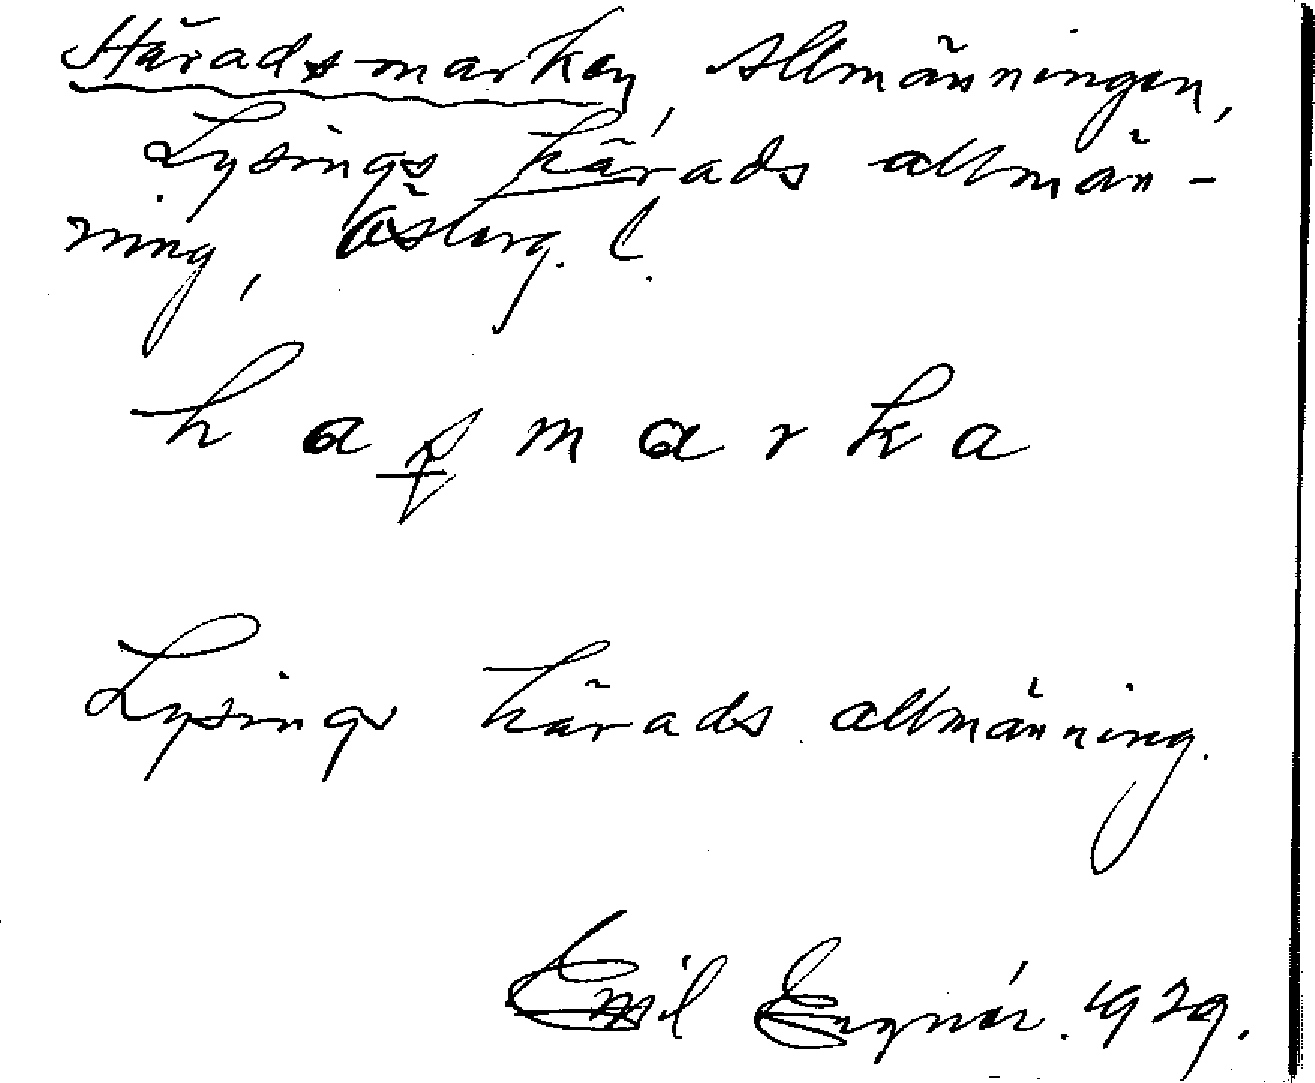 Häradsmarken, Allmänningen,
Lysings härads allmän-
ning, Österg. l.
Lysings härads allmänning.
Emil 1929.